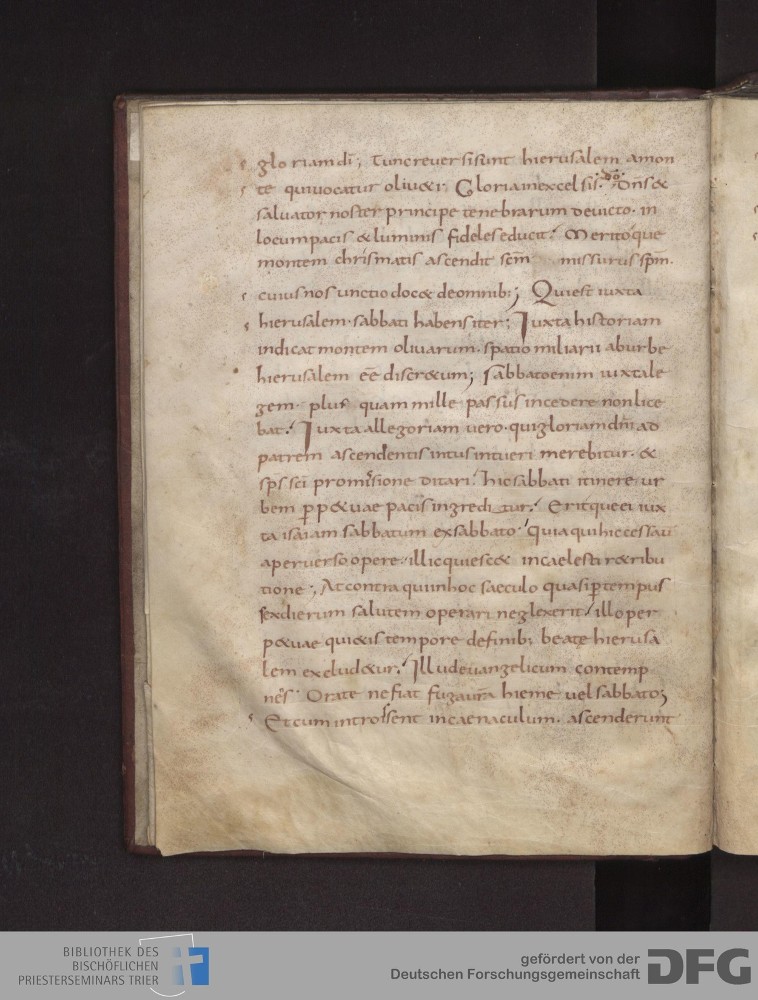 gloriam di; Tunc reversi sunt hierusalem a mon
te qui vocatur oliveti; Gloria in excelsis do; Dns &
salvator noster principe tenebrarum devicto. in
locum pacis & luminis fideles educit; Meritoque
montem chrismatis ascendit missurus spm.
cuius nos unctio doc& de omnib; Qui est iuxta
hierusalem. sabbati habens iter; Iuxta historiam
indicat montem olivarum. spatio miliarii ab urbe
hierusalem eē discr&um; Sabbato enim iuxta le
gem. plus quam mille passus incedere non lice
bat; Iuxta allegoriam vero. qui gloriam dni ad
patrem ascendentis intus intueri merebitur. &
sps sci promissione ditari. hic sabbati itinere ur
bem perp&uae pacis ingreditur; Eritque ei iux
ta isaiam sabbatum ex sabbato. Quia qui hic cessav
a perverso opere. illic quiesc& in caelesti r&ribu
tione; At contra qui in hoc saeculo quasi per tempus
sex dierum salutem operari neglexerit. illo per
p&uae qui&is tempore de finib; beatae hierusa
lem exclud&ur; Illud evangelicum contemp
nens. Orate ne fiat fuga vra hieme vel sabbato;
Et cum introissent in caenaculum. ascenderunt
BIBLIOTHEK DES
BISCHÖFLICHEN
PRIESTERSEMINARS TRIER
gefördert von der
Deutschen Forschungsgemeinschaft
DFG